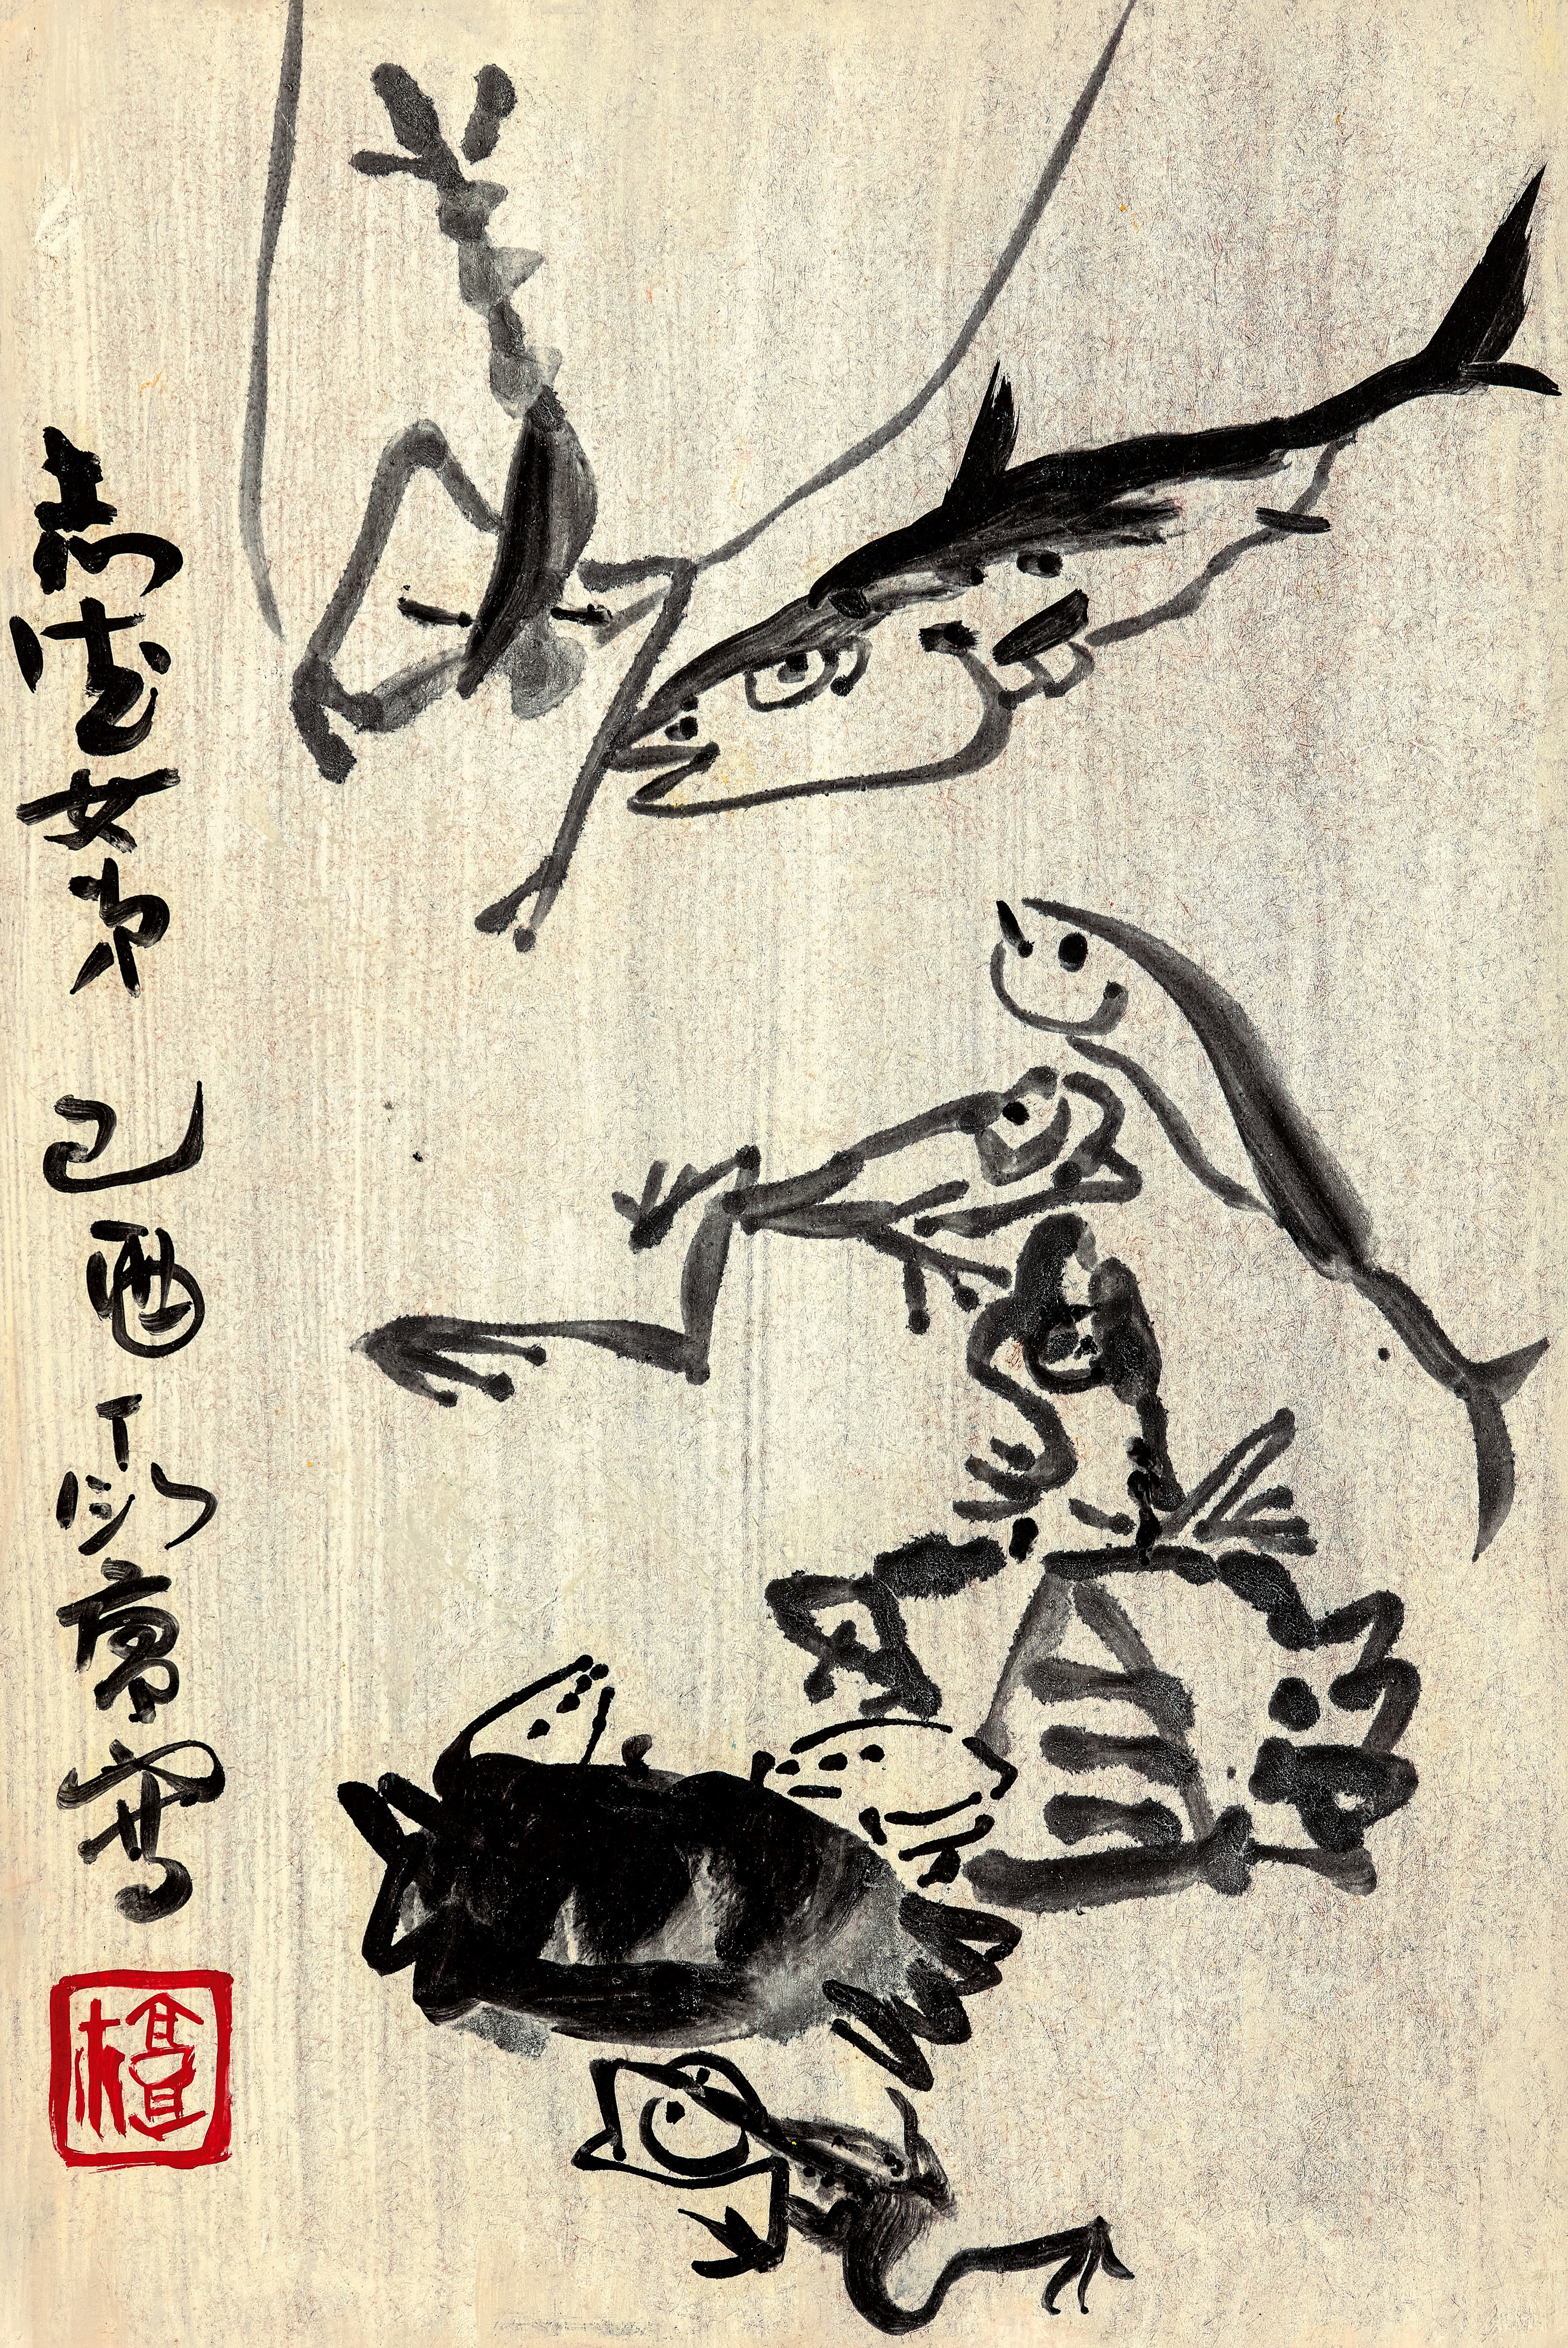 志女弟 己酉 丁衍庸寫